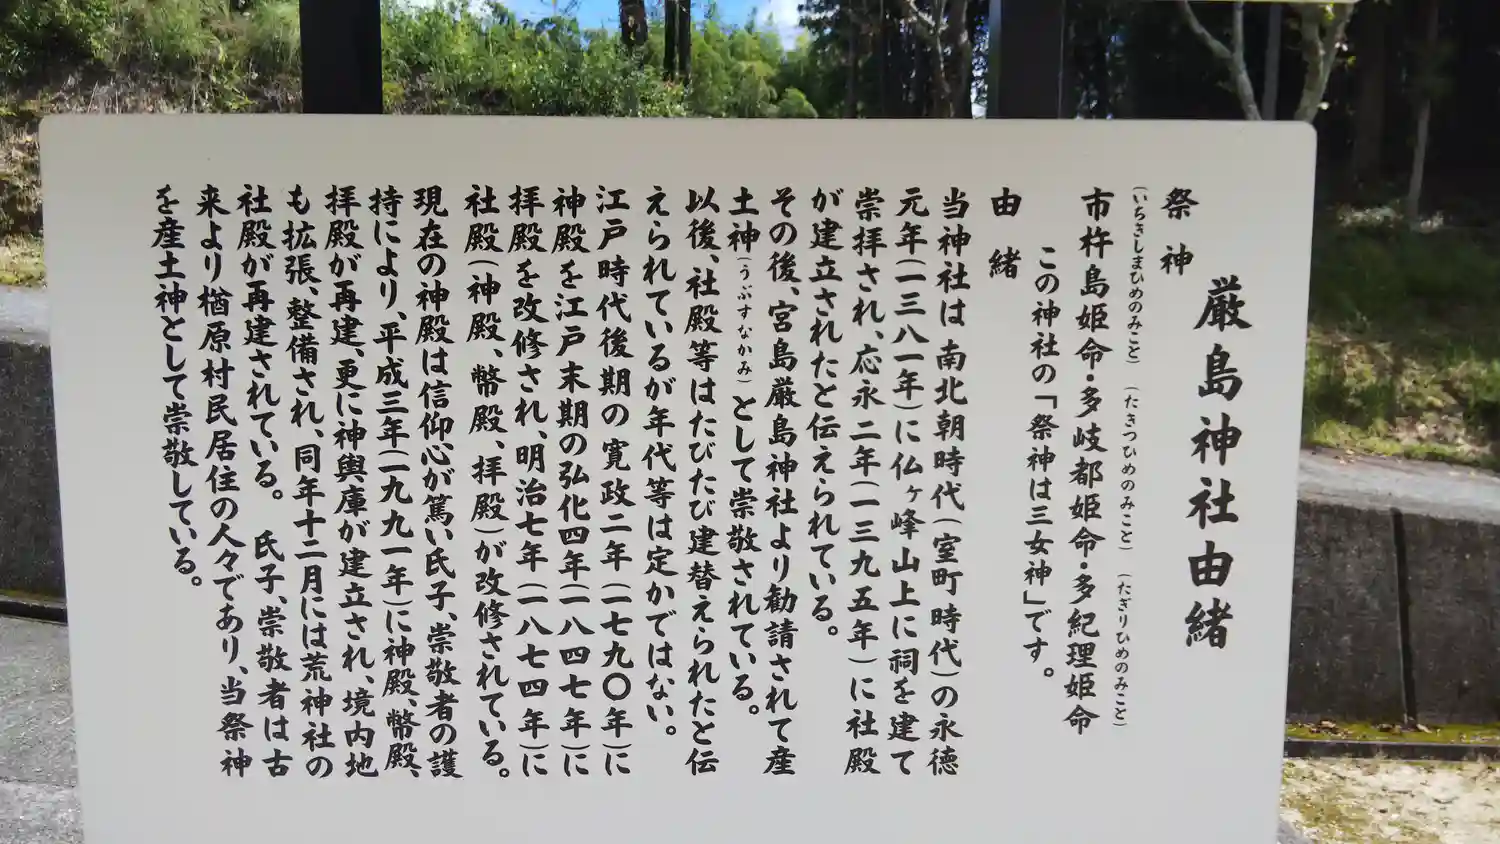 厳島神社由緒
祭 神
(いちきしまひめのみこと) (たきつひめのみこと) (たぎりひめのみこと)
市杵島姫命・多岐都姫命・多紀理姫命
この神社の「祭神は三女神」です。
由 緒
当神社は南北朝時代(室町時代)の永徳
元年(一三八一年)に仏ヶ峰山上に祠を建て
崇拝され、応永二年(一三九五年)に社殿
が建立されたと伝えられている。
その後、宮島厳島神社より勧請されて産
土神(うぶすなかみ)として崇敬されている。
以後、社殿等はたびたび建替えられたと伝
えられているが年代等は定かではない。
江戸時代後期の寛政二年(一七九〇年)に
神殿を江戸末期の弘化四年(一八四七年)に
拝殿を改修され、明治七年(一八七四年)に
社殿(神殿、幣殿、拝殿)が改修されている。
現在の神殿は信仰心が篤い氏子、崇敬者の護
持により、平成三年(一九九一年)に神殿、幣殿、
拝殿が再建、更に神輿庫が建立され、境内地
も拡張、整備され、同年十二月には荒神社の
社殿が再建されている。 氏子、崇敬者は古
来より楢原村民居住の人々であり、当祭神
を産土神として崇敬している。